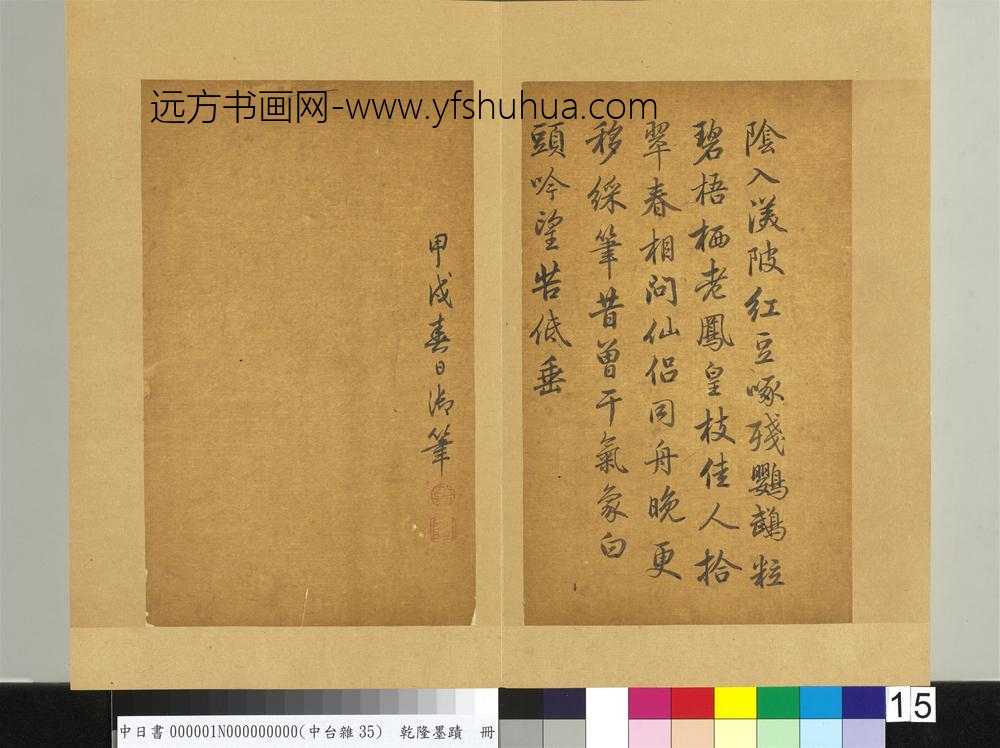 远方书画网-www.yfshuhua.com
陰入渼陂紅豆啄殘鸚鵡粒
碧梧栖老鳳皇枝佳人拾
翠春相問仙侶同舟晚更
移綵筆昔曾干氣象白
頭吟望苦低垂
甲戌春日御筆
15
中日書 000001N000000000(中台雜 35) 乾隆墨蹟 冊